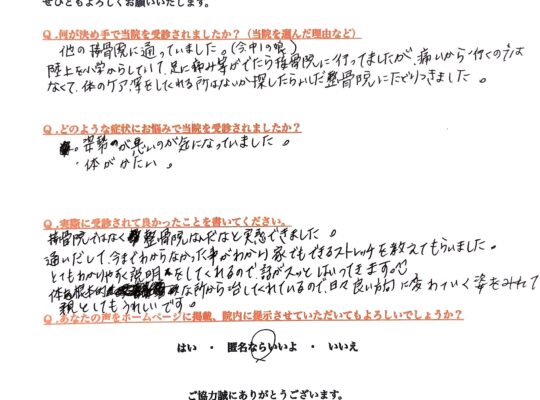 ぜひともよろしくお願いいたします。
Q.何が決め手で当院を受診されましたか?(当院を選んだ理由など)
他の接骨院に通っていました。(今中1の娘)
陸上を小学からしていて、足に痛み等がでたら接骨院に行ってましたが、痛いから行くのでは
なくて、体のケア等をしてくれる所はないか探したらいしだ整骨院にたどりつきました。
Q.どのような症状にお悩みで当院を受診されましたか?
・姿勢が悪いのが気になっていました。
・体がかたい。
Q.実際に受診されて良かったことを書いてください。
接骨院ではなく整骨院なんだなと実感できました。
通いだして、今までわからなかった事がわかり家でもできるストレッチを教えてもらいました。
とてもわかりやすく説明をしてくれるので話がスッとはいってきます♡
体を根本的な所から治してくれているので、日々良い方向に変わっていく姿をみれて
親としてもうれしいです。
Q.あなたの声をホームページに掲載、院内に提示させていただいてもよろしいでしょうか?
はい ・ 匿名ならいいよ ・ いいえ
ご協力誠にありがとうございます。